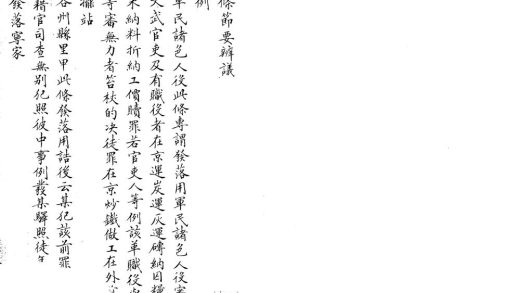 條節要辨議
例
軍民諸色人役此條專謂發落用軍民諸色人役審
文武官吏及有職役者在京運炭運灰運磚納囘糧
米納料折納工價贖罪若官吏人等例該革職役
等審無力者笞杖的决徒罪在京炒鐵做工在外
擺站
各州縣里甲此條發落用詰後云某犯該前罪
精官司查無別犯照彼中事例發某驛照徒年
發落寧家